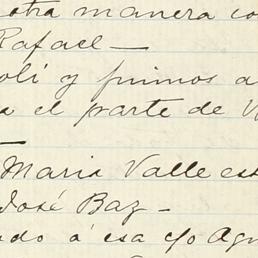 otra manera co
Rafael —
oli y fuimos a
a el parte de V
Maria Valle est
José Baz —
ndo á esa c/o Agu